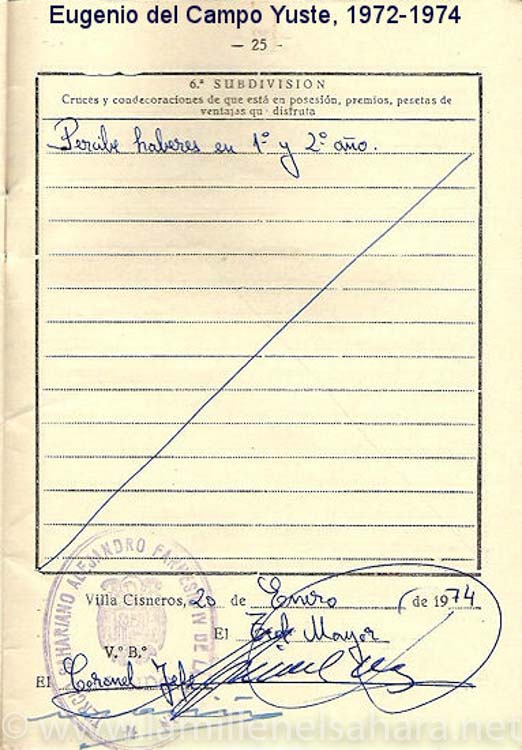 Eugenio del Campo Yuste, 1972-1974
— 25 -
6.ª SUBDIVISION
Cruces y condecoraciones de que está en posesión, premios, pesetas de
ventajas qu disfruta
Percibe haberes en 1º y 2º año.
TERCIO SAHARIANO ALEJANDRO FARNESIO IV DE LA
Villa Cisneros, 20 de Enero de 1974
El Mayor
V.º B.º
El Coronel Jefe
© www.lamilienelsahara.net